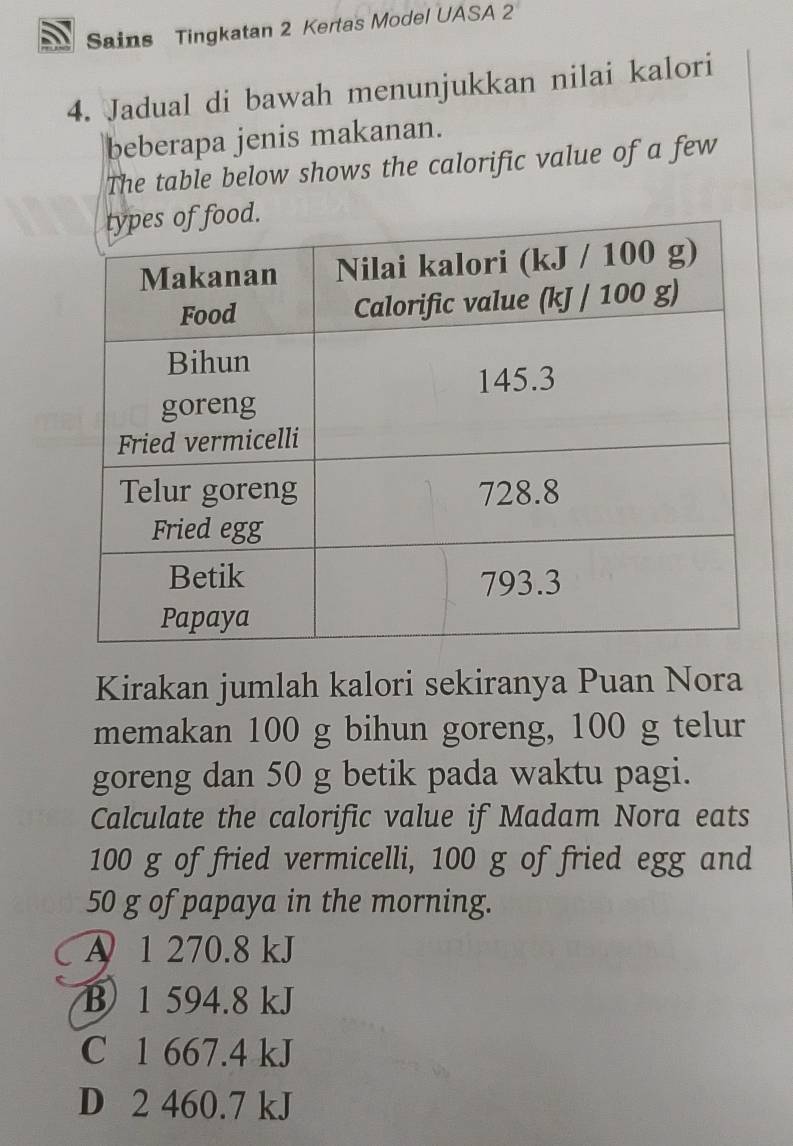 PELANGI
Sains Tingkatan 2 Kertas Model UASA 2
4. Jadual di bawah menunjukkan nilai kalori
beberapa jenis makanan.
The table below shows the calorific value of a few
types of food.
Makanan
Food
Nilai kalori (kJ / 100 g)
Calorific value (kJ / 100 g)
Bihun
goreng
Fried vermicelli
145.3
Telur goreng
Fried egg
728.8
Betik
Papaya
793.3
Kirakan jumlah kalori sekiranya Puan Nora
memakan 100 g bihun goreng, 100 g telur
goreng dan 50 g betik pada waktu pagi.
Calculate the calorific value if Madam Nora eats
100 g of fried vermicelli, 100 g of fried egg and
50 g of papaya in the morning.
A 1 270.8 kJ
B 1 594.8 kJ
C 1 667.4 kJ
D 2 460.7 kJ